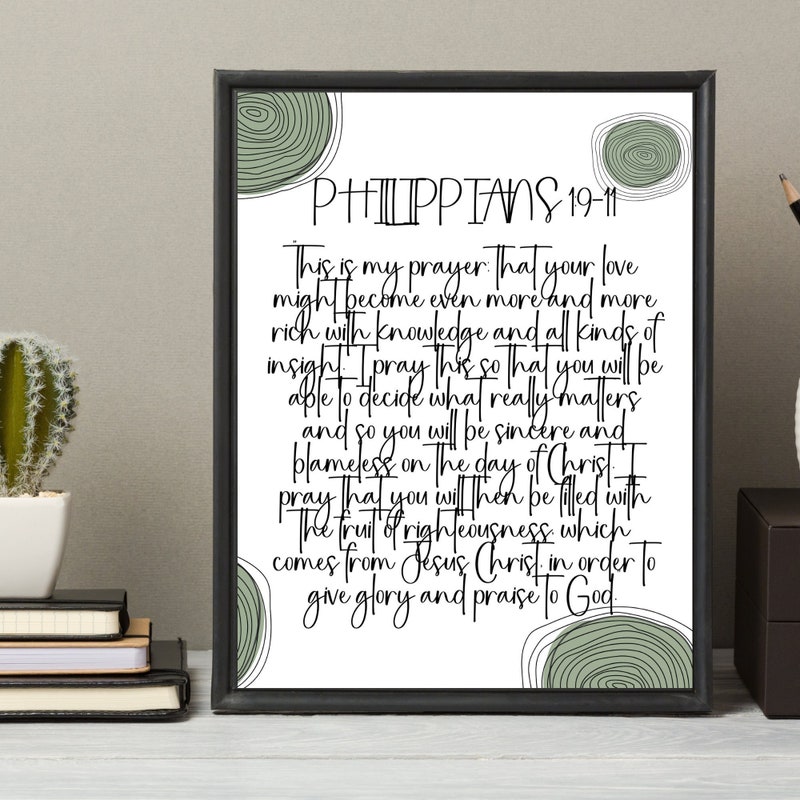 PHILIPPIANS 1:9-11
This is my prayer: that your love
might become even more and more
rich with knowledge and all kinds of
insight. I pray this so that you will be
able to decide what really matters
and so you will be sincere and
blameless on the day of Christ. I
pray that you will then be filled with
the fruit of righteousness, which
comes from Jesus Christ, in order to
give glory and praise to God.